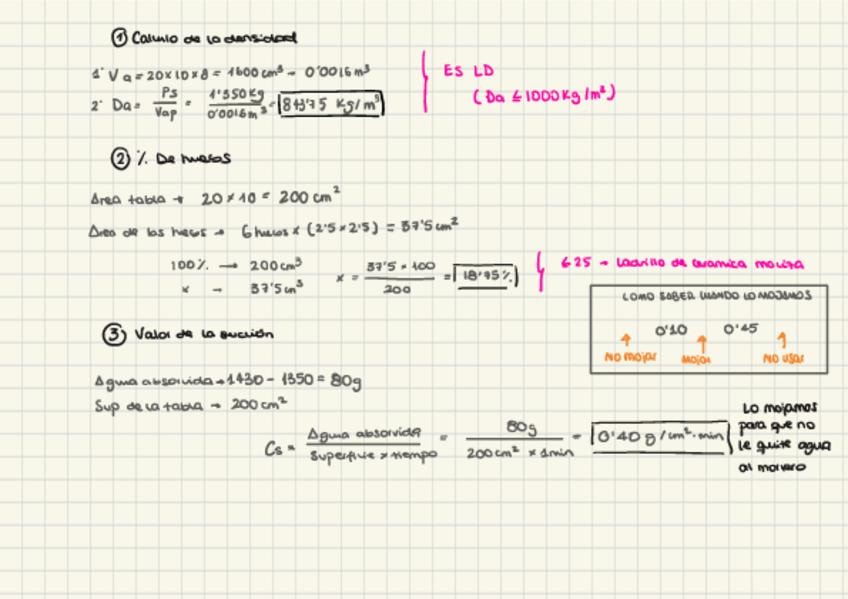 ① Calculo de la densidad
1º Va = 20x10x8 = 1600 cm³ → 0'0016 m³
2º Da = Ps / Vap = 1'350 Kg / 0'0016 m³ = 843'75 Kg/m³
ES LD
(Da ≤ 1000 Kg/m³)
② % De huecos
Área tabla → 20 x 10 = 200 cm²
Área de los huecos → 6 huecos x (2'5 x 2'5) = 37'5 cm²
100% → 200 cm³
x → 37'5 cm³
x = 37'5 x 100 / 200 = 18'75%
≤ 25 → Ladrillo de ceramica maciza
③ Valor de la succión
COMO SABER CUANDO LO MOJAMOS
0'10 0'45
NO mojar Mojar NO usar
Agua absorvida → 1430 - 1350 = 80g
Sup de la tabla → 200 cm²
Cs = Agua absorvida / Superficie x tiempo = 80g / 200 cm² x 1min = 0'40 g/cm²·min
Lo mojamos
para que no
le quite agua
al mortero